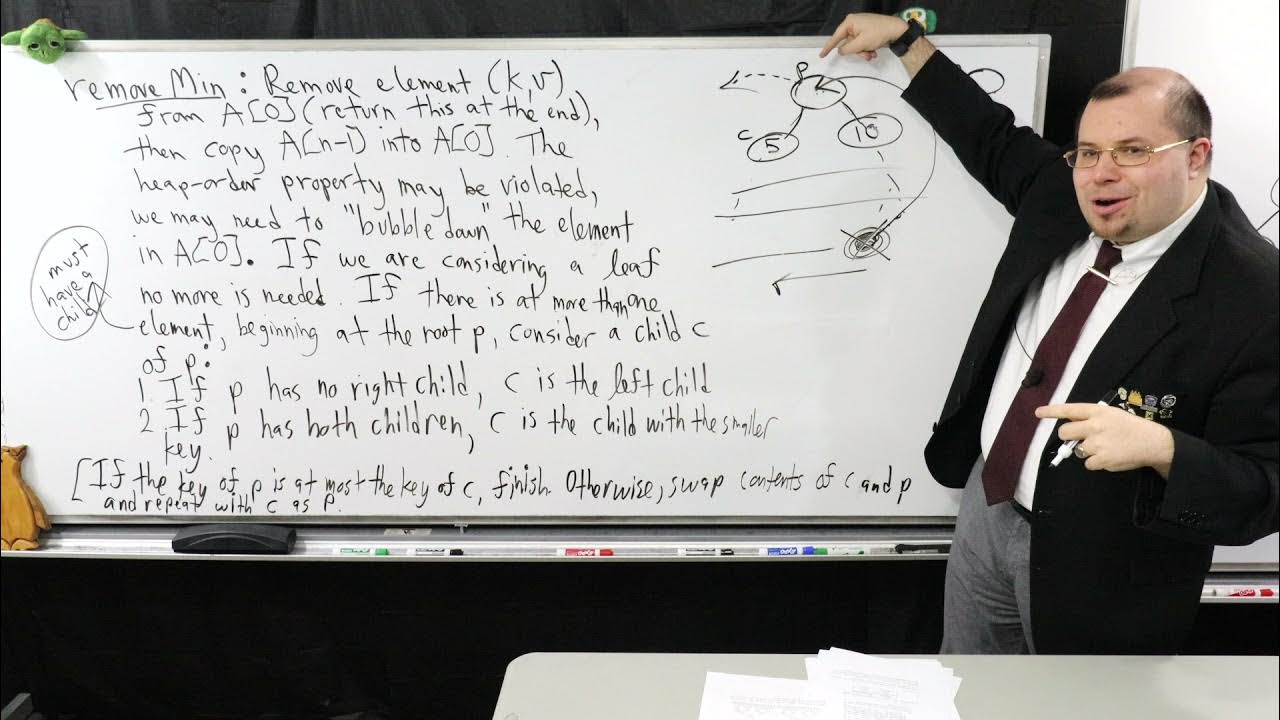 removeMin: Remove element (k,v)
from A[0] (return this at the end),
then copy A[n-1] into A[0]. The
heap-order property may be violated,
we may need to "bubble down" the element
in A[0]. If we are considering a leaf
no more is needed. If there is at more than one
element, beginning at the root p, consider a child c
of p:
1. If p has no right child, c is the left child
2. If p has both children, c is the child with the smaller
key.
[If the key of p is at most the key of c, finish. Otherwise, swap contents of c and p
and repeat with c as p.
must
have a
child
p
c
5
10